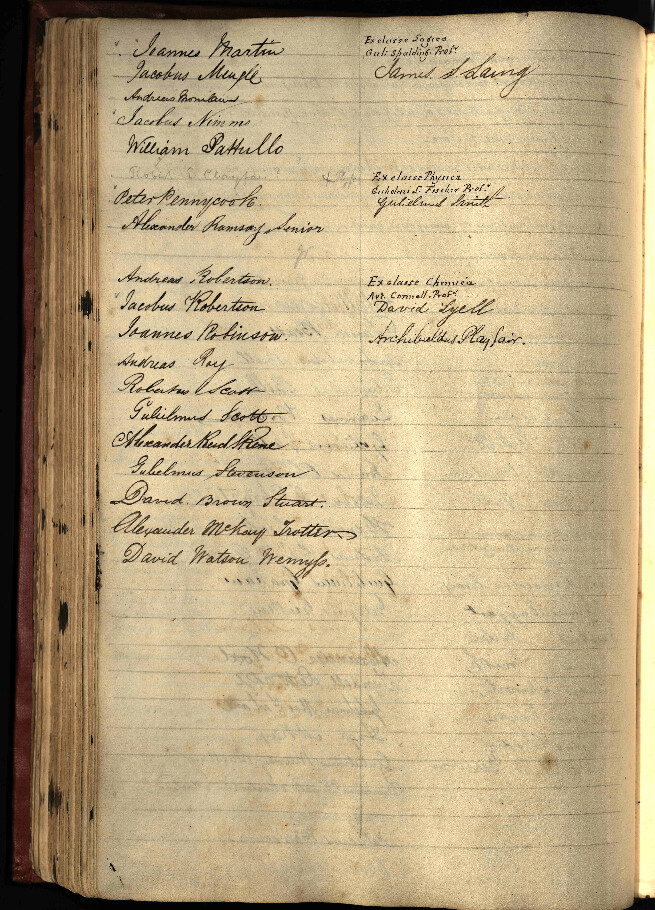 Joannes Martin
Jacobus Meagle
Andreas
Jacobus Nimmo
William Pattullo
Robert
Peter Pennycook.
Alexander Ramsay Senior
Andreas Robertson.
Jacobus Robertson
Joannes Robinson.
Andreas Roy
Robertus Scott
Gulielmus Scott
Alexander Reid Skene
Gulielmus Stevenson
David Brown Stuart.
Alexander McKay Trotter
David Watson Wemyss.
Ex classe Logica
Gul: Spalding, Profr.
James S. Laing
Ex classe Physica
Gulielmi L. Fischer Profr.
Gulielmus Smith
Ex classe Chemica
Art. Connell, Profr.
David Lyell
Archibaldus Playfair.